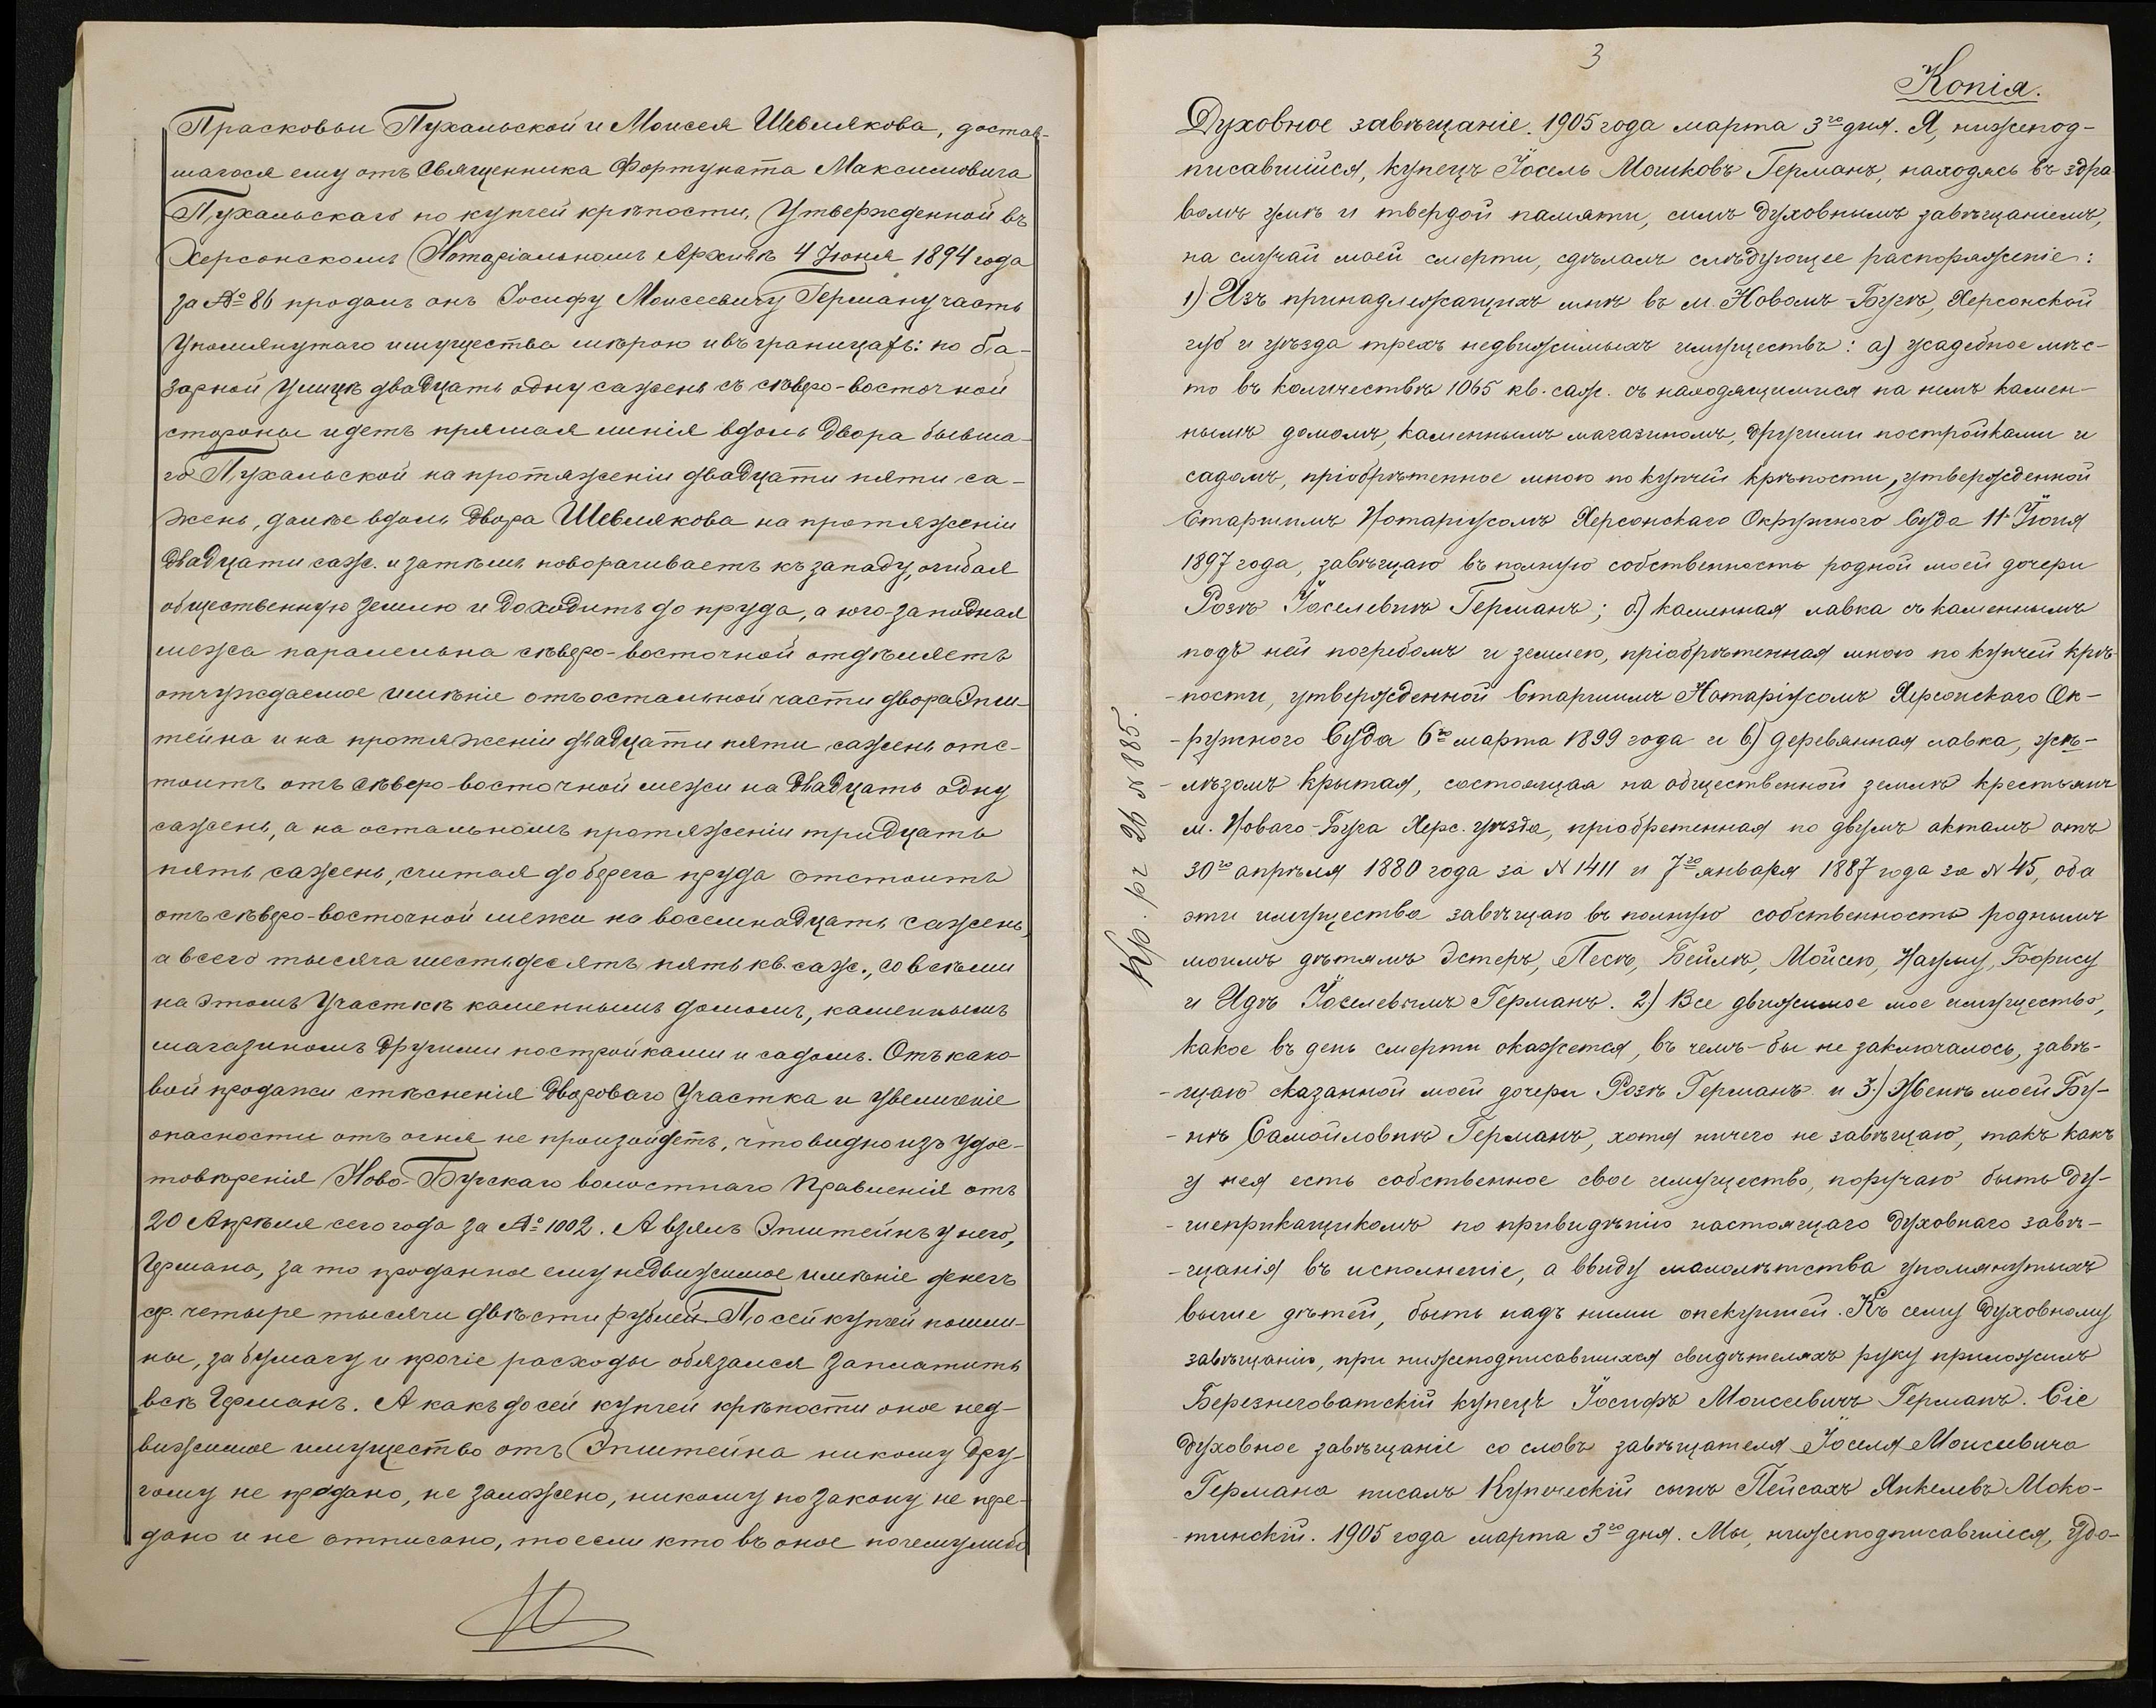 Прасковьи Пухальской и Моисея Шевлякова, достав-
шагося ему отъ Священника Фортуната Максимовича
Пухальскаго по купчей крѣпости, утвержденной въ
Херсонскомъ Нотаріальномъ Архивѣ 4 Іюня 1894 года
за № 86 продалъ онъ Іосифу Моисеевичу Герману часть
упомянутаго имущества мѣрою и въ границахъ: по ба-
зарной улицѣ двадцать одну сажень съ сѣверо-восточной
стороны идетъ прямая линія вдоль двора бывша-
го Пухальской на протяженіи двадцати пяти са-
жень, далѣе вдоль двора Шевлякова на протяженіи
двадцати саж. и затѣмъ поворачиваетъ къ западу, огибая
общественную землю и доходитъ до пруда, а юго-западная
межа паралельна сѣверо-восточной отдѣляетъ
отчуждаемое имѣніе отъ остальной части двора Эпш-
тейна и на протяженіи двадцати пяти сажень отс-
тоитъ отъ сѣверо-восточной межи на двадцать одну
сажень, а на остальномъ протяженіи тридцать
пять сажень, считая до берега пруда отстоитъ
отъ сѣверо-восточной межи на восемнадцать сажень,
а всего тысяча шестьдесятъ пять кв. саж., со всѣми
на этомъ участкѣ каменнымъ домомъ, каменнымъ
магазиномъ другими постройками и садомъ. Отъ како-
вой продажи стѣсненія двороваго участка и увеличеніе
опасности отъ огня не произойдетъ, что видно изъ удос-
товѣренія Ново-Бугскаго волостнаго Правленія отъ
20 Апрѣля сего года за № 1002. А взялъ Эпштейнъ у него,
Германа, за то проданное ему недвижимое имѣніе денегъ
ср. четыре тысячи двѣсти рублей. По сей купчей пошли-
ны, за бумагу и прочіе расходы обязался заплатить
всѣ Германъ. А какъ до сей купчей крѣпости оное нед-
вижимое имущество отъ Эпштейна никому дру-
гому не продано, не заложено, никому по закону не пере-
дано и не отписано, то если кто въ оное почему либо
3
Копія.
Духовное завѣщаніе. 1905 года марта 3го дня. Я, нижепод-
писавшійся, купецъ Іосель Мошковъ Германъ, находясь въ здра-
вомъ умѣ и твердой памяти, симъ духовнымъ завѣщаніемъ,
на случай моей смерти, сдѣлалъ слѣдующее распоряженіе:
1) Изъ принадлежащихъ мнѣ въ м. Новомъ-Бугѣ, Херсонской
губ и уѣзда трехъ недвижимыхъ имуществъ: а) усадебное мѣс-
то въ количествѣ 1065 кв. саж. съ находящимися на немъ камен-
нымъ домомъ, каменнымъ магазиномъ, другими постройками и
садомъ, пріобрѣтенное мною по купчей крѣпости, утвержденной
Старшимъ Нотаріусомъ Херсонскаго Окружного Суда 11 Іюня
1897 года, завѣщаю въ полную собственность родной моей дочери
Розѣ Іоселевнѣ Германъ; б) каменная лавка съ каменнымъ
подъ ней погребомъ и землею, пріобрѣтенная мною по купчей крѣ-
-пости, утвержденной Старшимъ Нотаріусомъ Херсонскаго Ок-
-ружного Суда 6го марта 1899 года и в) деревянная лавка, желѣ-
-лѣзомъ крытая, состоящая на общественной землѣ крестьянъ
м. Новаго-Буга Херс. уѣзда, пріобретенная по двумъ актамъ отъ
30го апрѣля 1880 года за N 1411 и 7го января 1887 года за N 45, оба
эти имущества завѣщаю въ полную собственность роднымъ
моимъ дѣтямъ Эстеръ, Песѣ, Бейлѣ, Мойсею, Науму, Борису
и Идѣ Іоселевымъ Германъ. 2) Все движимое мое имущество,
какое въ день смерти окажется, въ чемъ-бы не заключалось, завѣ-
-щаю сказанной моей дочери Розѣ Германъ и 3) Женѣ моей Бу-
-нѣ Самойловнѣ Германъ, хотя ничего не завѣщаю, такъ какъ
у нея есть собственное свое имущество, поручаю быть ду-
-шеприкащикомъ по привидѣнію настоящаго духовнаго завѣ-
-щанія въ исполненіе, а ввиду малолѣтства упомянутыхъ
выше дѣтей, быть надъ ними опекуншей. Къ сему духовному
завѣщанію, при нижеподписавшихся свидѣтеляхъ руку приложилъ
Березнеговатскій купецъ Іосифъ Моисеевичъ Германъ. Сіе
духовное завѣщаніе со словъ завѣщателя Іоселя Моисеевича
Германа писалъ Купеческій сынъ Пейсахъ Янкелевъ Моко-
тинскій. 1905 года марта 3го дня. Мы, нижеподписавшіеся, удо-